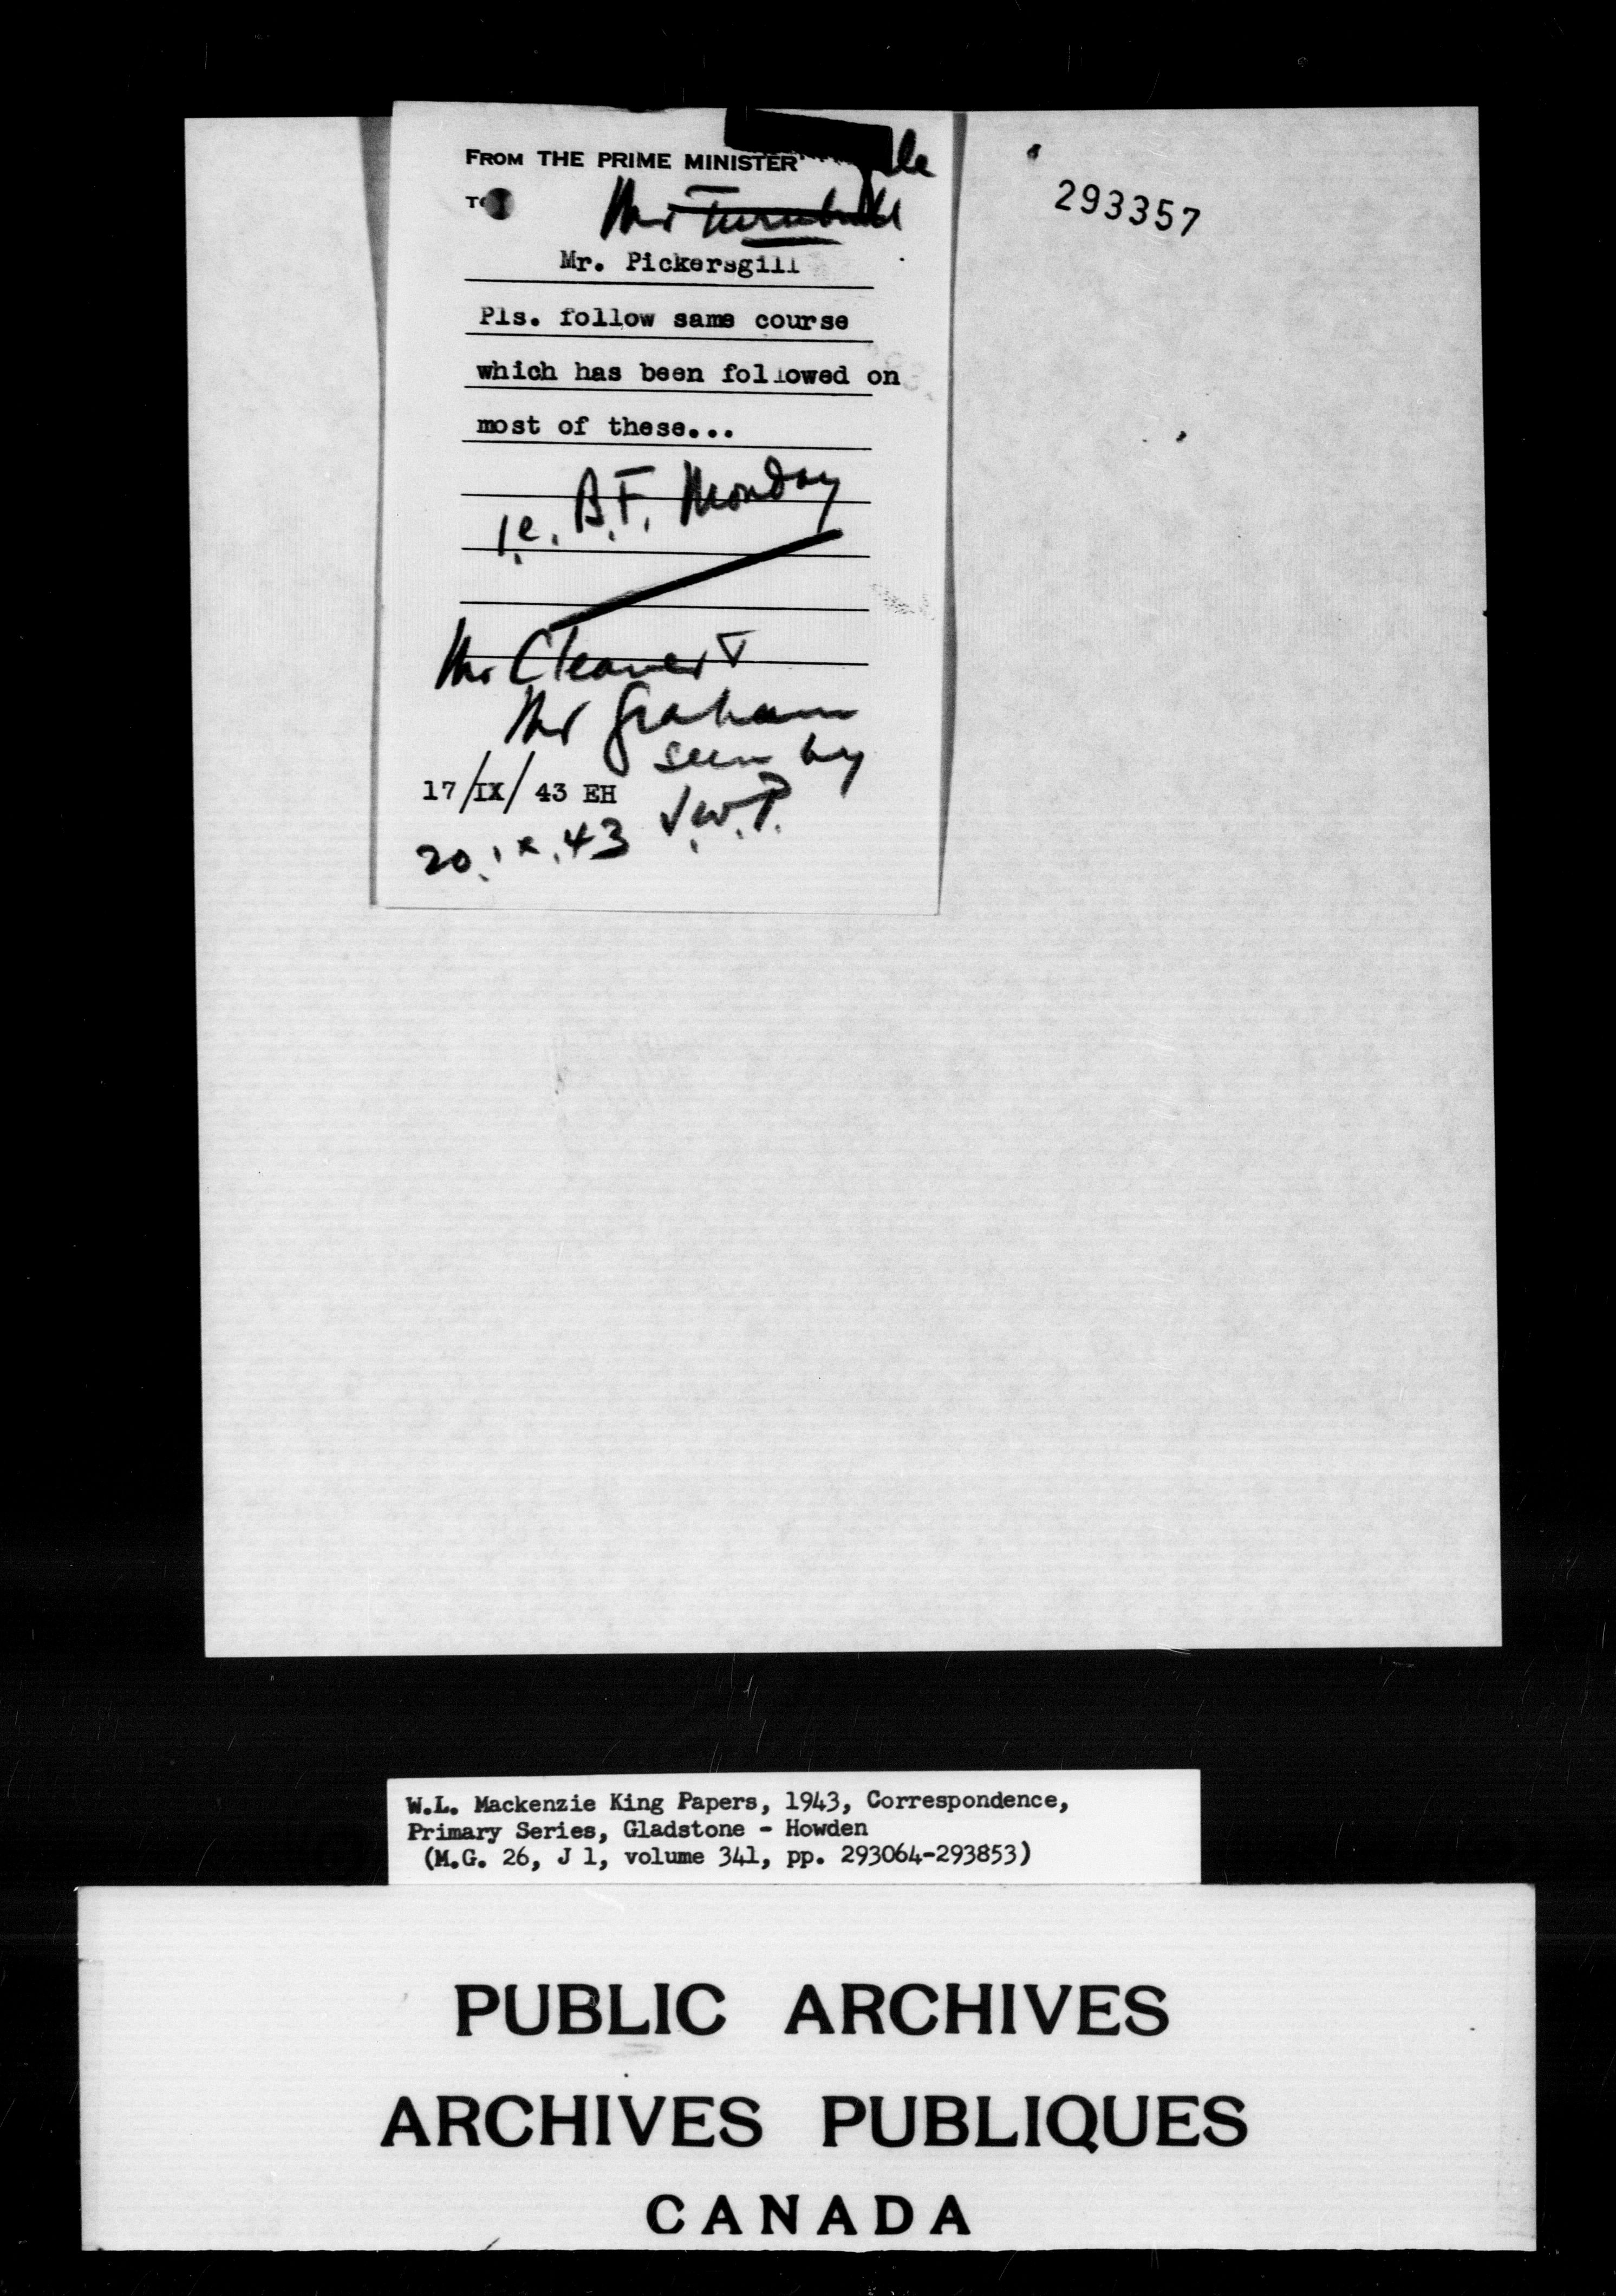 FROM THE PRIME MINISTER
TO
293357
Mr Turnbull
Mr. Pickersgill
Pls. follow same course
which has been followed on
most of these...
i.e. B.F. Monday
Mr Cleaver
Mr Graham
seen by
17/IX/ 43 EH
J.W.P.
20.ix.43
W.L. Mackenzie King Papers, 1943, Correspondence,
Primary Series, Gladstone - Howden
(M.G. 26, J 1, volume 341, pp. 293064-293853)
PUBLIC ARCHIVES
ARCHIVES PUBLIQUES
CANADA